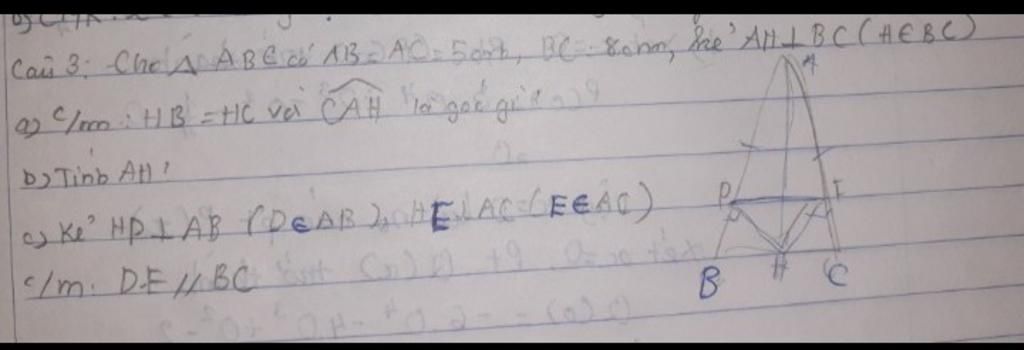 Câu 3: Cho Δ ABC có AB = AC = 5cm, BC = 8cm, kẻ AH ⊥ BC (H ∈ BC)
a) c/m: HB = HC và CAH là góc gì?
b) Tính AH?
c) Kẻ HD ⊥ AB (D ∈ AB), HE ⊥ AC (E ∈ AC)
c/m: DE // BC
A
D E
B H C